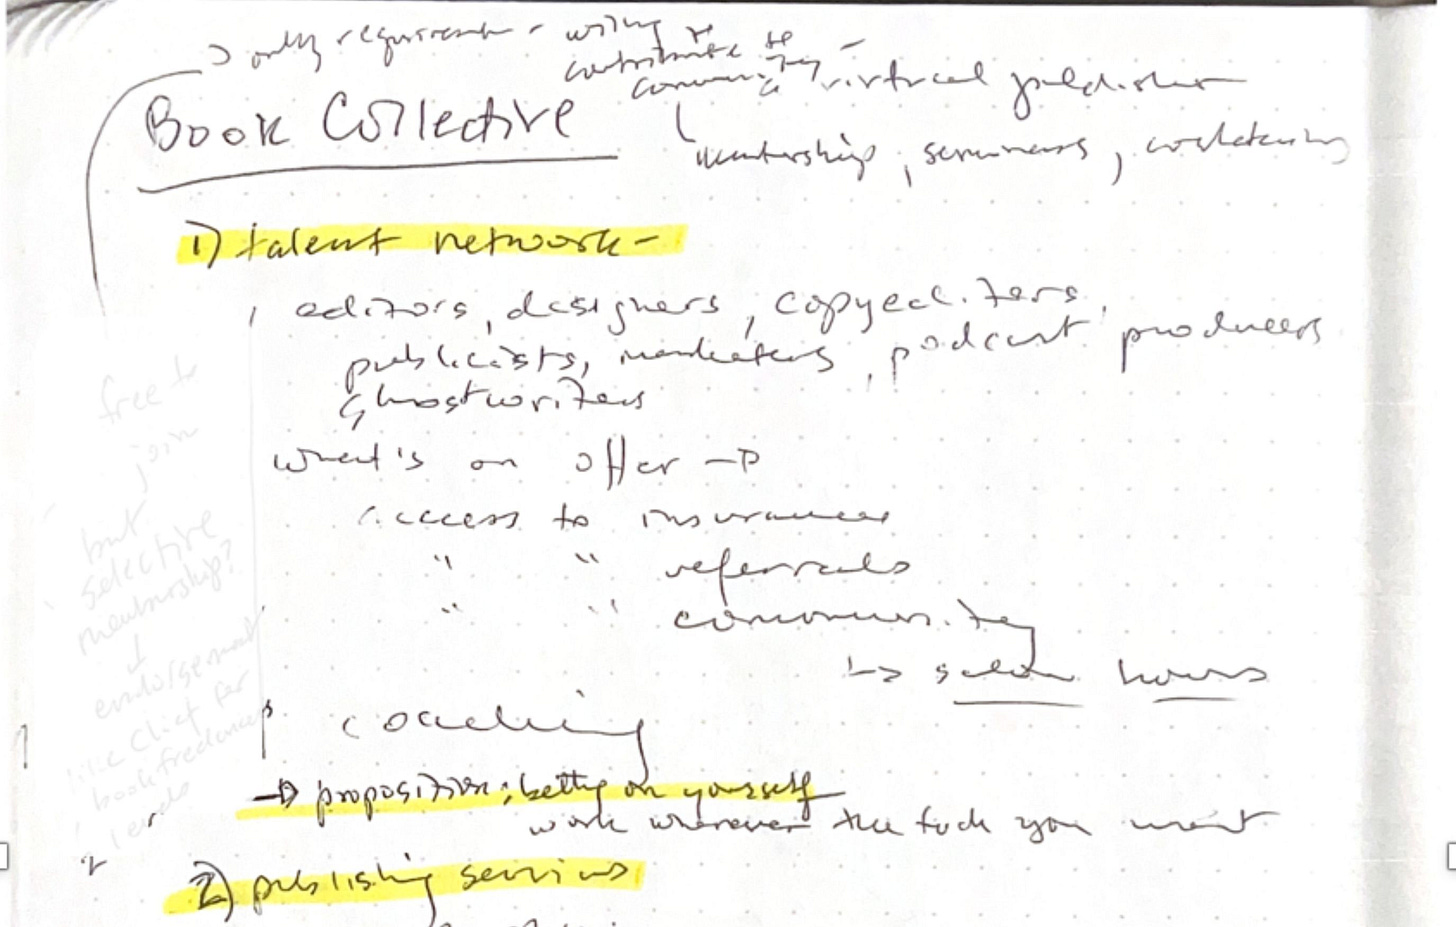 → only requirement - willing to
contribute to
community
- virtual publisher
Book Collective
mentorship, seminars, cocktailing
1) talent network -
editors, designers, copyeditors,
publicists, marketers, podcast producers
ghostwriters
what's on offer →
access to insurance
" " referrals
" " community
↳ salon hours
coaching
→ proposition: betting on yourself
work wherever the fuck you want
free to
join
but
selective
membership?
↓
endorsement
like Clict for
book freelancers
2) publishing services